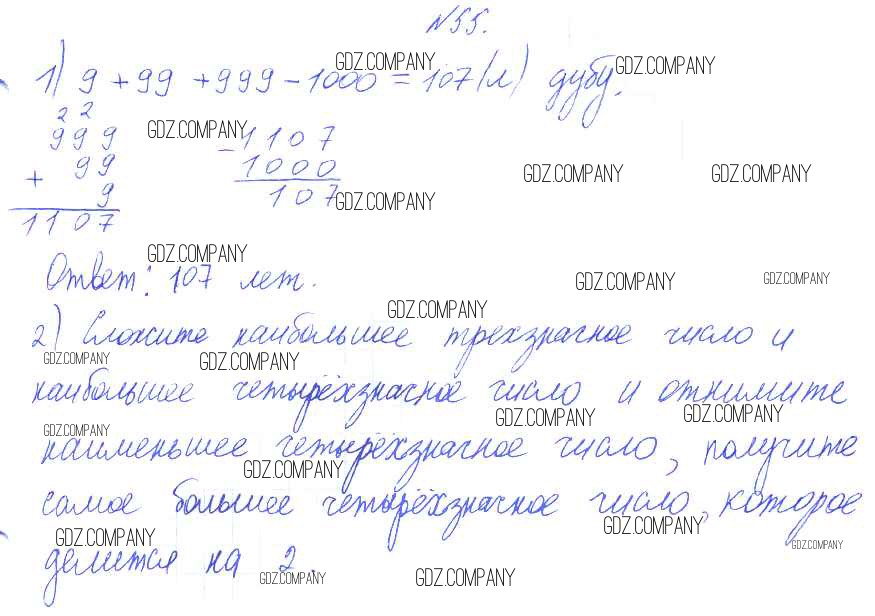 №55.
1) 9 + 99 + 999 - 1000 = 107 (л) дубу.
GDZ.COMPANY GDZ.COMPANY
2 2
999 GDZ.COMPANY - 1107
+ 99 1000 GDZ.COMPANY GDZ.COMPANY
9 107 GDZ.COMPANY
1107
GDZ.COMPANY
Ответ: 107 лет. GDZ.COMPANY GDZ.COMPANY
GDZ.COMPANY
2) Сложите наибольшее трехзначное число и
GDZ.COMPANY GDZ.COMPANY
наибольшее четырёхзначное число и отнимите
GDZ.COMPANY GDZ.COMPANY GDZ.COMPANY
наименьшее четырёхзначное число, получите
GDZ.COMPANY
самое большее четырёхзначное число, которое
GDZ.COMPANY GDZ.COMPANY GDZ.COMPANY
делится на 2.
GDZ.COMPANY GDZ.COMPANY